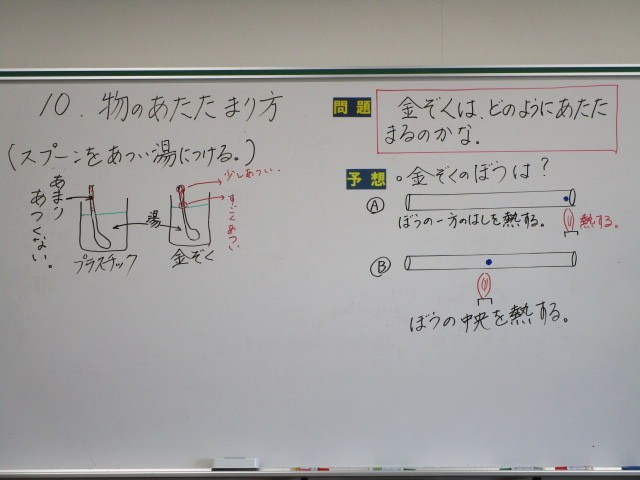 10. 物のあたたまり方
(スプーンをあつい湯につける。)
あまり
あつくない。
湯
少しあつい。
すごくあつい
プラスチック
金ぞく
問題
金ぞくは、どのようにあたた
まるのかな。
予想
○金ぞくのぼうは?
Ⓐ
ぼうの一方のはしを熱する。
熱する。
Ⓑ
ぼうの中央を熱する。